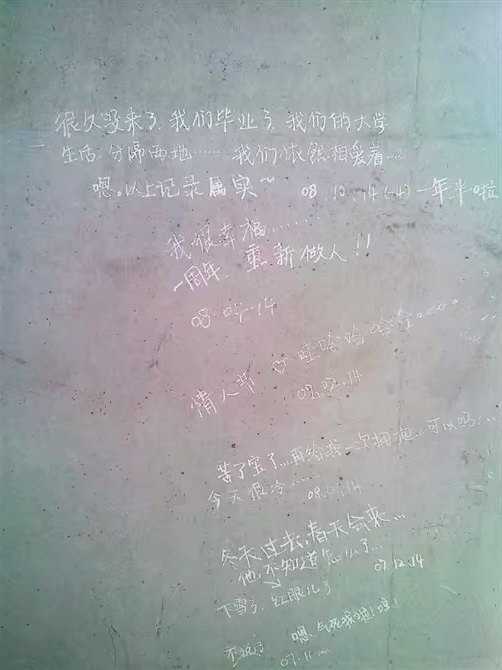 很久没来了，我们毕业了，我们的大学
生活，分隔两地……我们依然相爱着……
嗯。以上记录属实~ 08.10.14 一年半啦
我很幸福……
一周年，重新做人!!
08.05.14
情人节 哇哈哈哈哈。。。。
08.02.14
苦了宝了…再给我一次拥抱…可以吗…
今天很冷…… 08.01.14
冬天过去，春天会来…
他不知道怎么了… 07.12.14
下雪了，红眼儿了
嗯、气死我啦!哇!
07.11.14